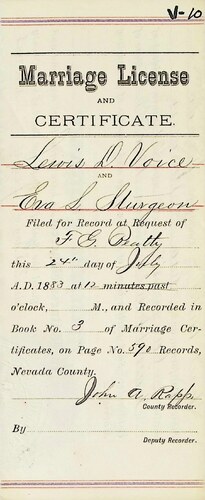 V-10
Marriage License
AND
CERTIFICATE.
Lewis D. Voice
AND
Eva S. Sturgeon
Filed for Record at Request of
F. G. Beatty
this 24" day of July
A.D. 1883 at 12 minutes past
o'clock, M., and Recorded in
Book No. 3 of Marriage Cer-
tificates, on Page No. 590 Records,
Nevada County.
John A. Rapp
County Recorder.
By
Deputy Recorder.